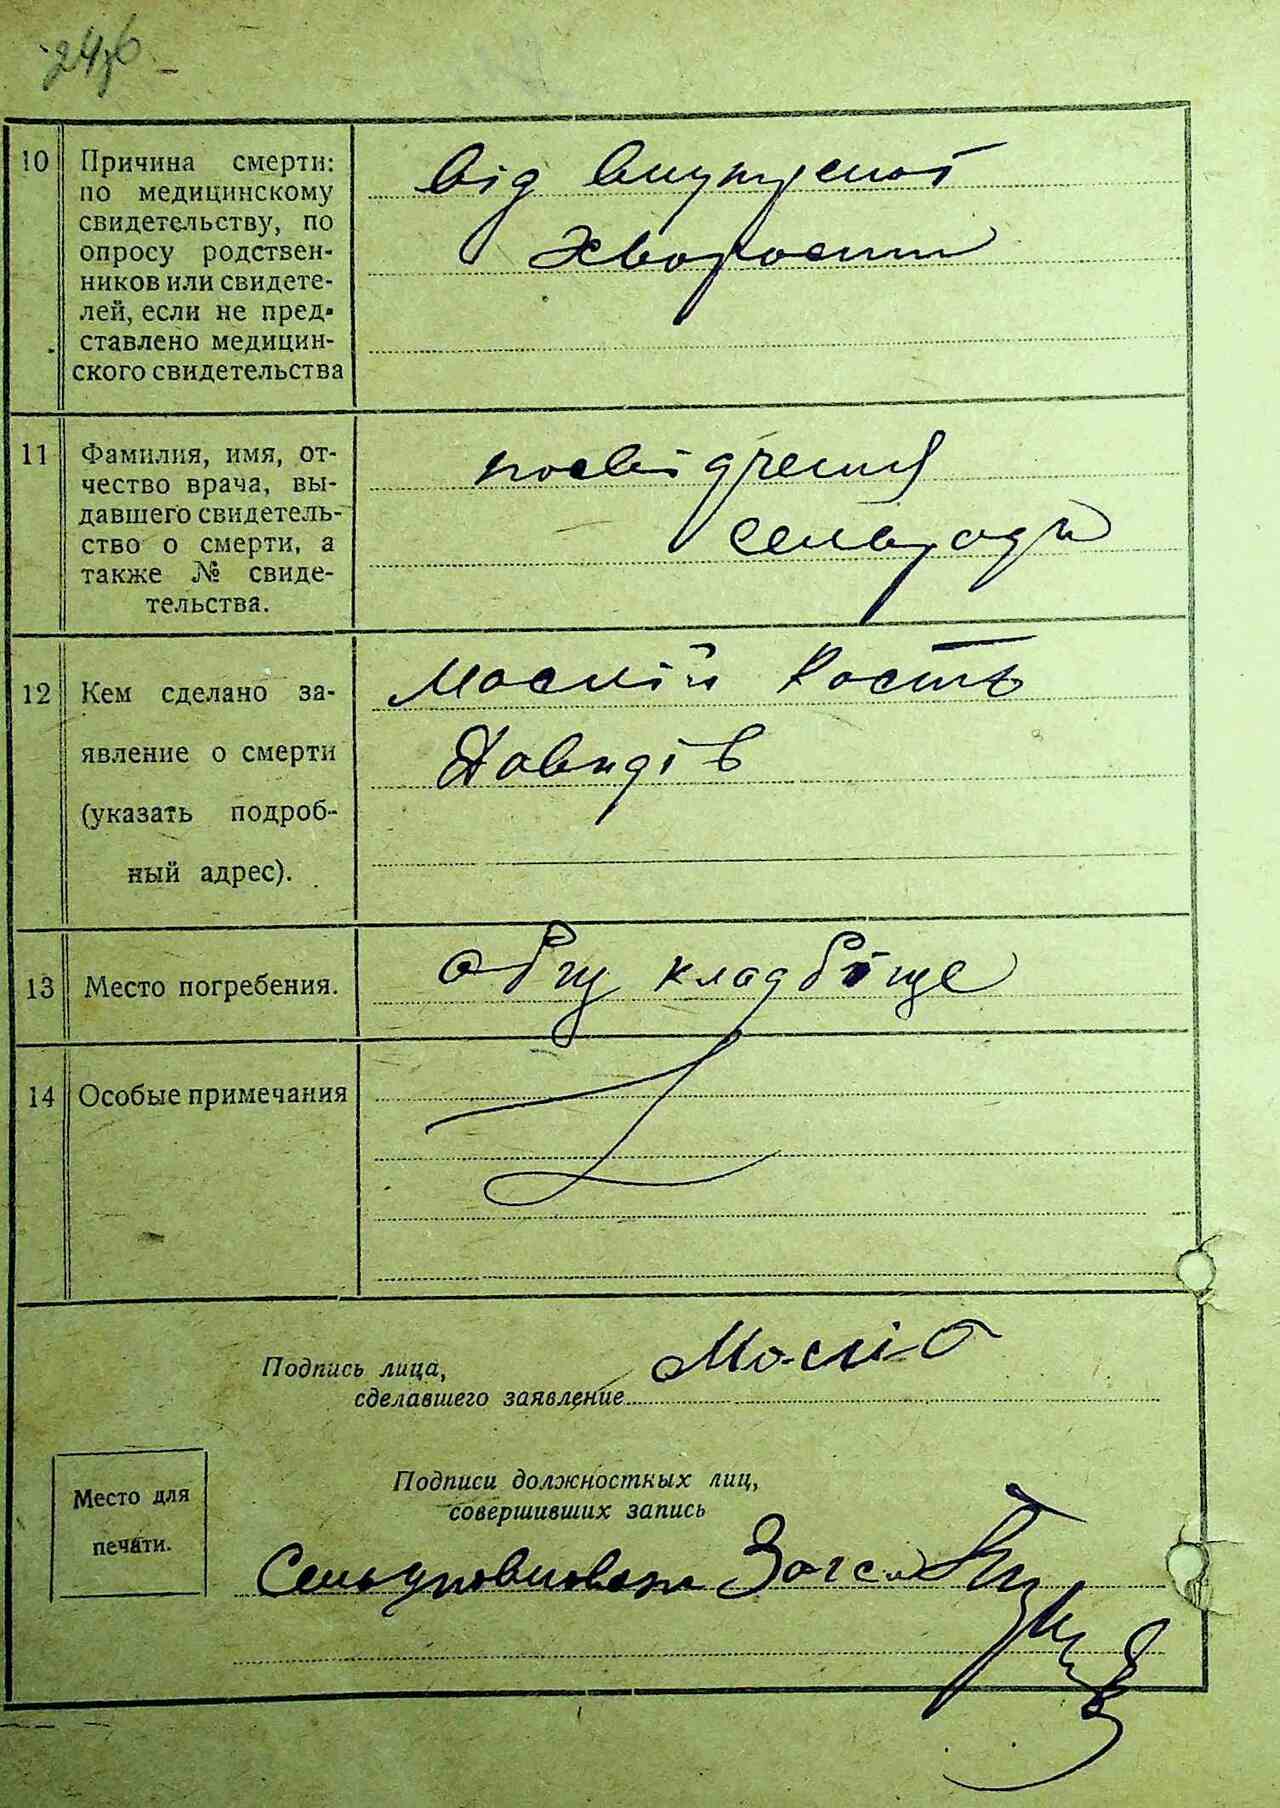 10 Причина смерти:
по медицинскому
свидетельству, по
опросу родствен-
ников или свидете-
лей, если не пред-
ставлено медицин-
ского свидетельства
від внутреної
хворости
11 Фамилия, имя, от-
чество врача, вы-
давшего свидетель-
ство о смерти, а
также № свиде-
тельства.
посвідчення
сельради
12 Кем сделано за-
явление о смерти
(указать подроб-
ный адрес).
Кость
Давидів
13 Место погребения.
общ кладбіще
14 Особые примечания
Подпись лица,
сделавшего заявление
Подписи должностных лиц,
совершивших запись
Место для
печати.
Сельуповноважен Загса